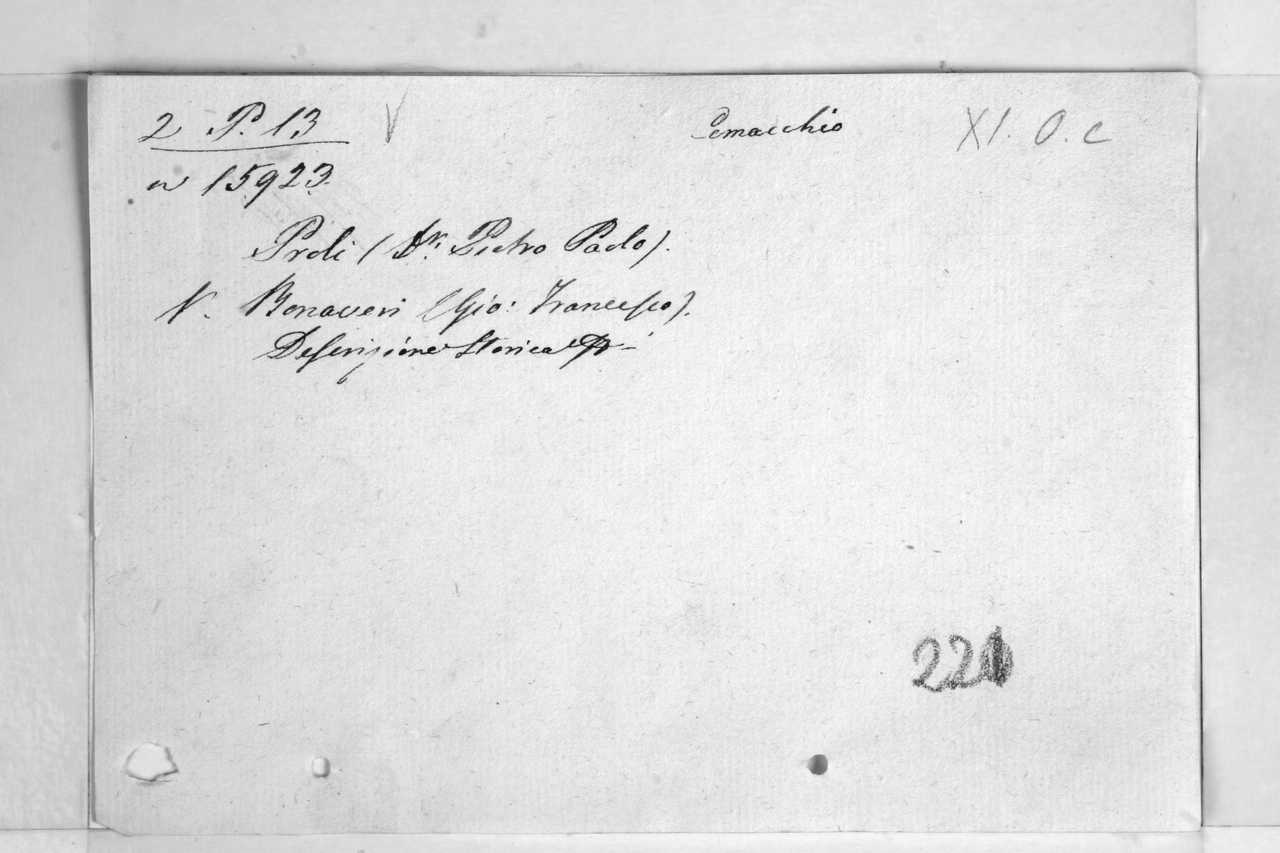 2 P. 13 V Comacchio XI. O. c
n 15923.
Proli (Dr. Pietro Paolo).
V. Bonaveri (Gio: Francesco).
Descrizione Storica
221